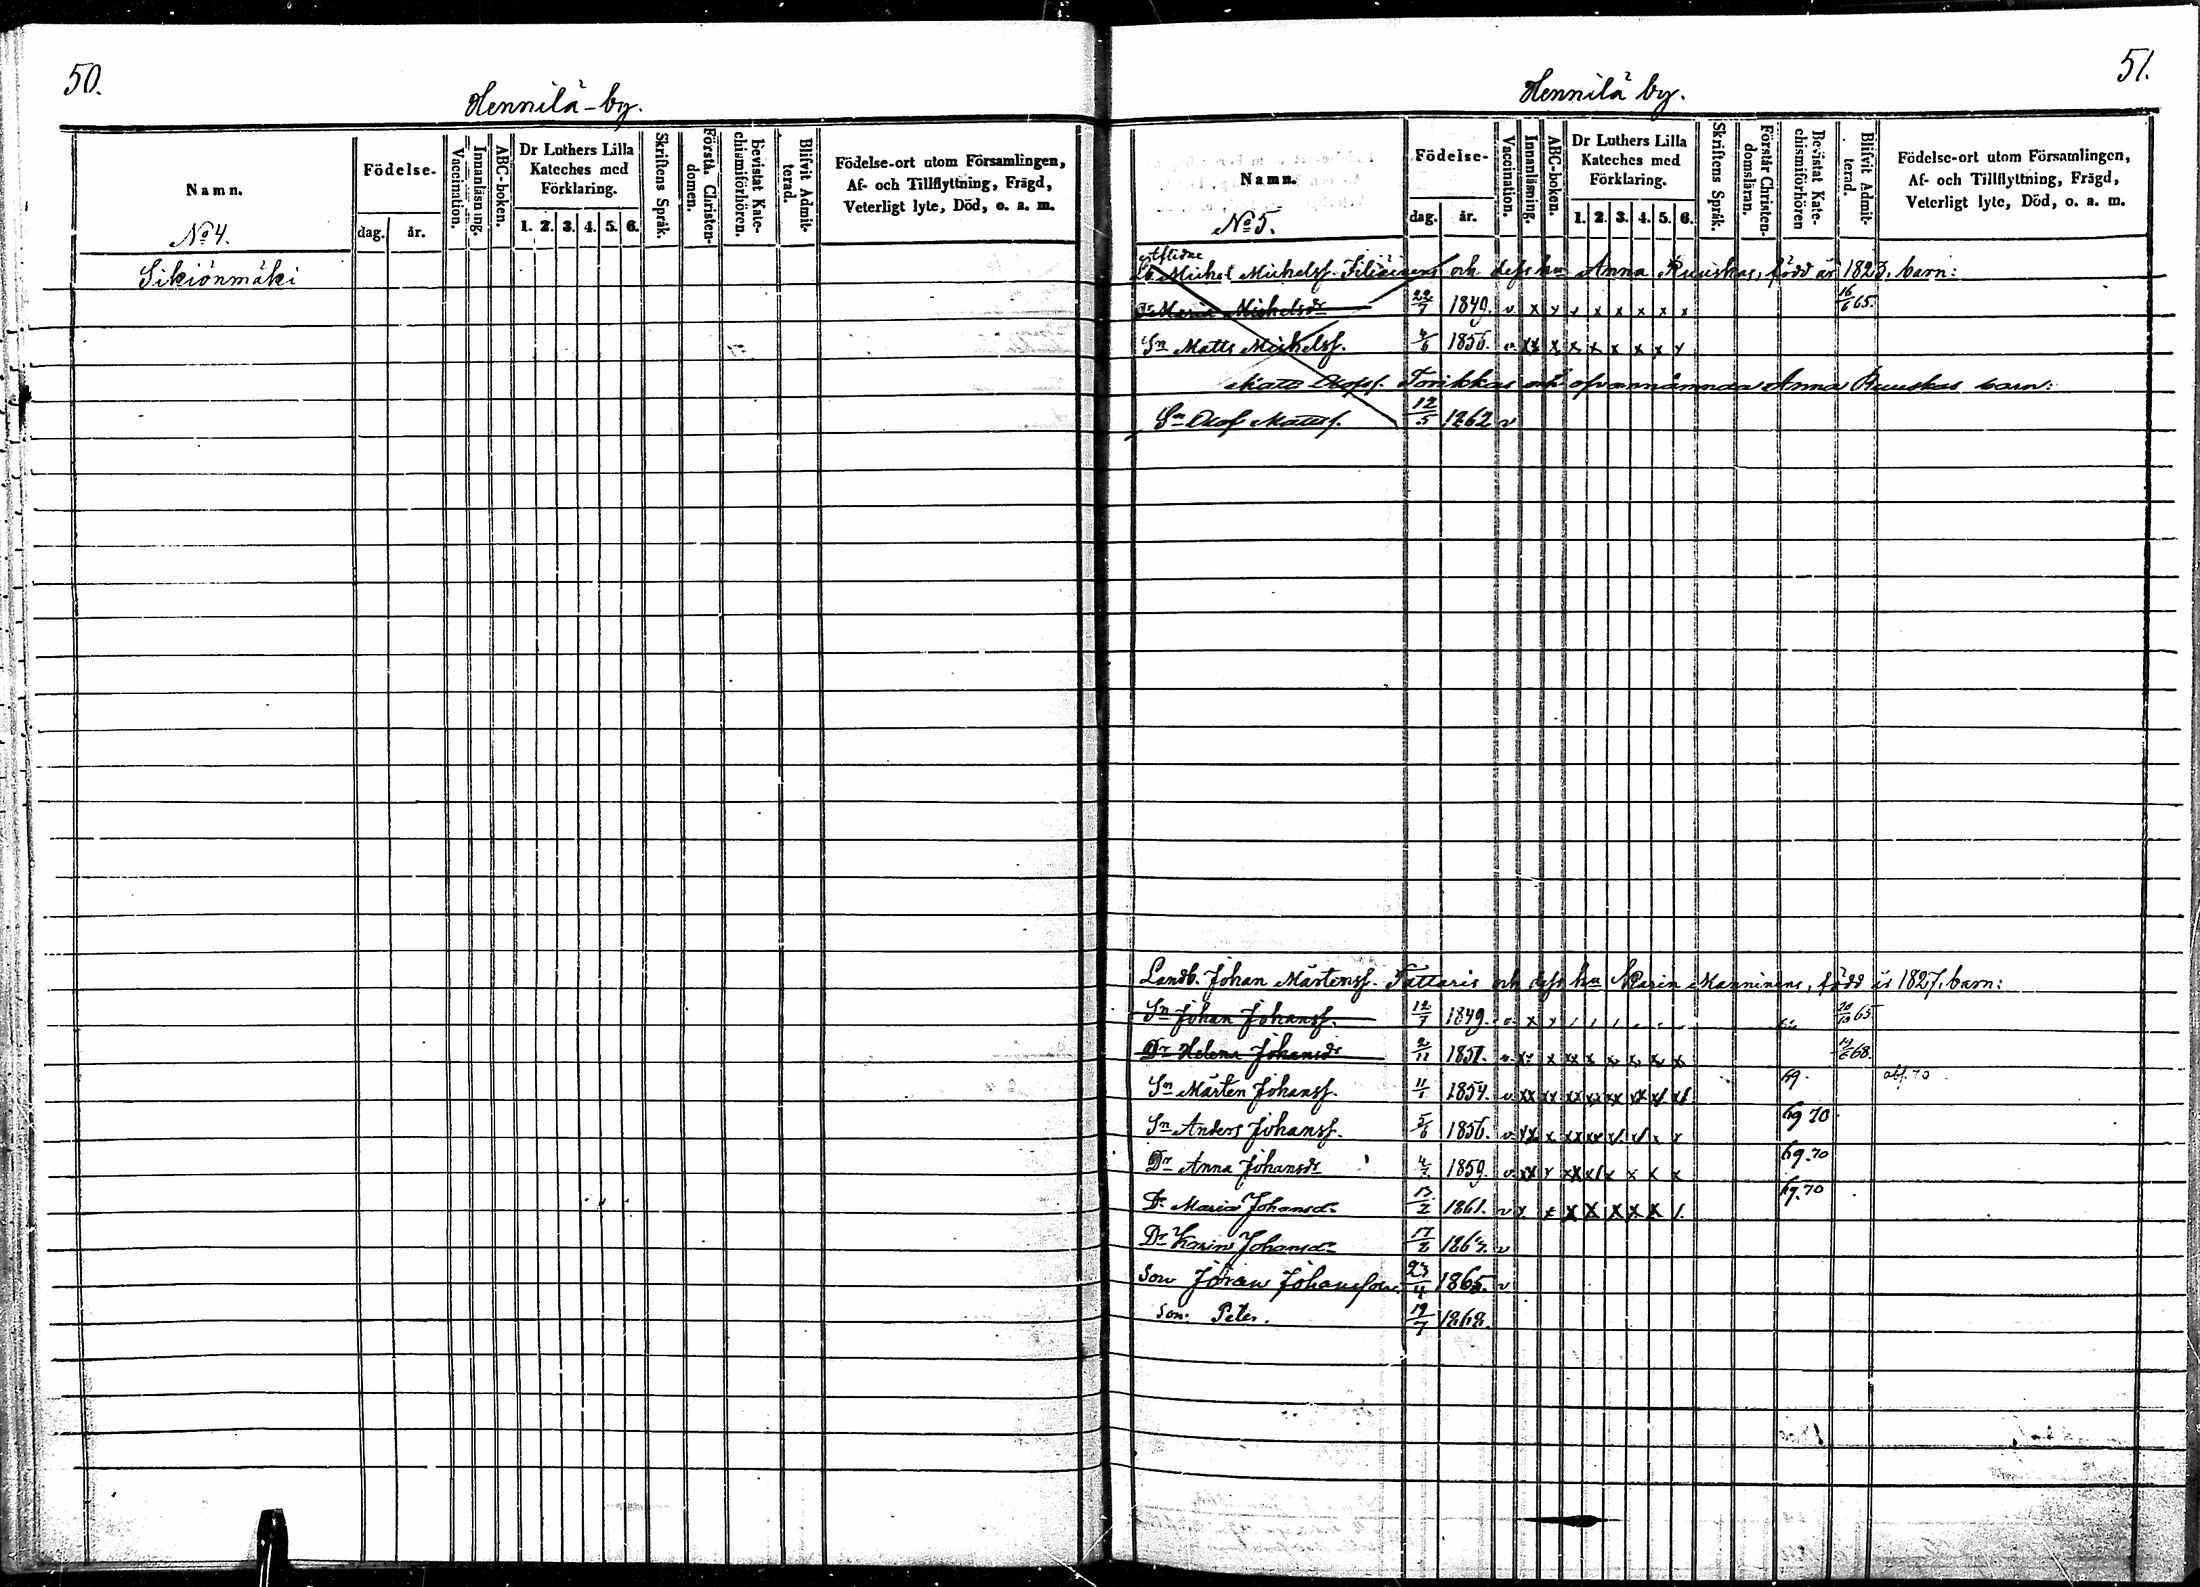 50.
Hennilä-by.
Namn.
No 4.
Födelse-
dag.
år.
Vaccination.
Innanläsning.
ABC-boken.
Dr Luthers Lilla
Kateches med
Förklaring.
1. 2. 3. 4. 5. 6.
Skriftens Språk.
Förstå. Christen-
domen.
Bevistat Kate-
chismiförhören.
Blifvit Admit-
terad.
Födelse-ort utom Församlingen,
Af- och Tillflyttning, Frägd,
Veterligt lyte, Död, o. a. m.
Sikiönmäki
51.
Hennilä by.
Namn.
No 5.
Födelse-
dag.
år.
Vaccination.
Innanläsning.
ABC-boken.
Dr Luthers Lilla
Kateches med
Förklaring.
1. 2. 3. 4. 5. 6.
Skriftens Språk.
Förstår Christen-
domsläran.
Bevistat Kate-
chismiförhören
Blifvit Admit-
terad.
Födelse-ort utom Församlingen,
Af- och Tillflyttning, Frägd,
Veterligt lyte, Död, o. a. m.
Aflidne
Michel Michelss. och dess hu Anna Ruuskas, född år 1823, barn:
Dr Maria Michelsdr 22/7 1849. v x x x x x x x x 16/6 65.
Sn Matts Michelss. 4/6 1856. v. xx x x x x x x x
Matts Olofss. Torikkas och ofvannämnda Anna Ruuskas barn:
Sn Olof Mattss. 12/5 1862 v
Landb. Johan Mårtenss. Tattaris och dess hu Karin Manninens, född år 1827, barn:
Sn Johan Johanss. 12/7 1849. v. x x 65
Dr Helena Johansdr 2/11 1851. v. xx x xx x x x x x 68.
Sn Mårten Johanss. 11/1 1854. v xx xx xx xx xx xx x/ x/ 69. abs. 70
Sn Anders Johanss. 5/6 1856. v. xx x xx xx x/ x/ x x 69 70
Dr Anna Johansdr 1859. v xx x xx x/ x x x x 69.70
Dr Maria Johansdr 13/2 1861. v x x x x x x x /. 69.70
Dr Karin Johansdr v
Son Jöran Johansson. 23/4 1865. v
Son. Peter. 19/7 1868.